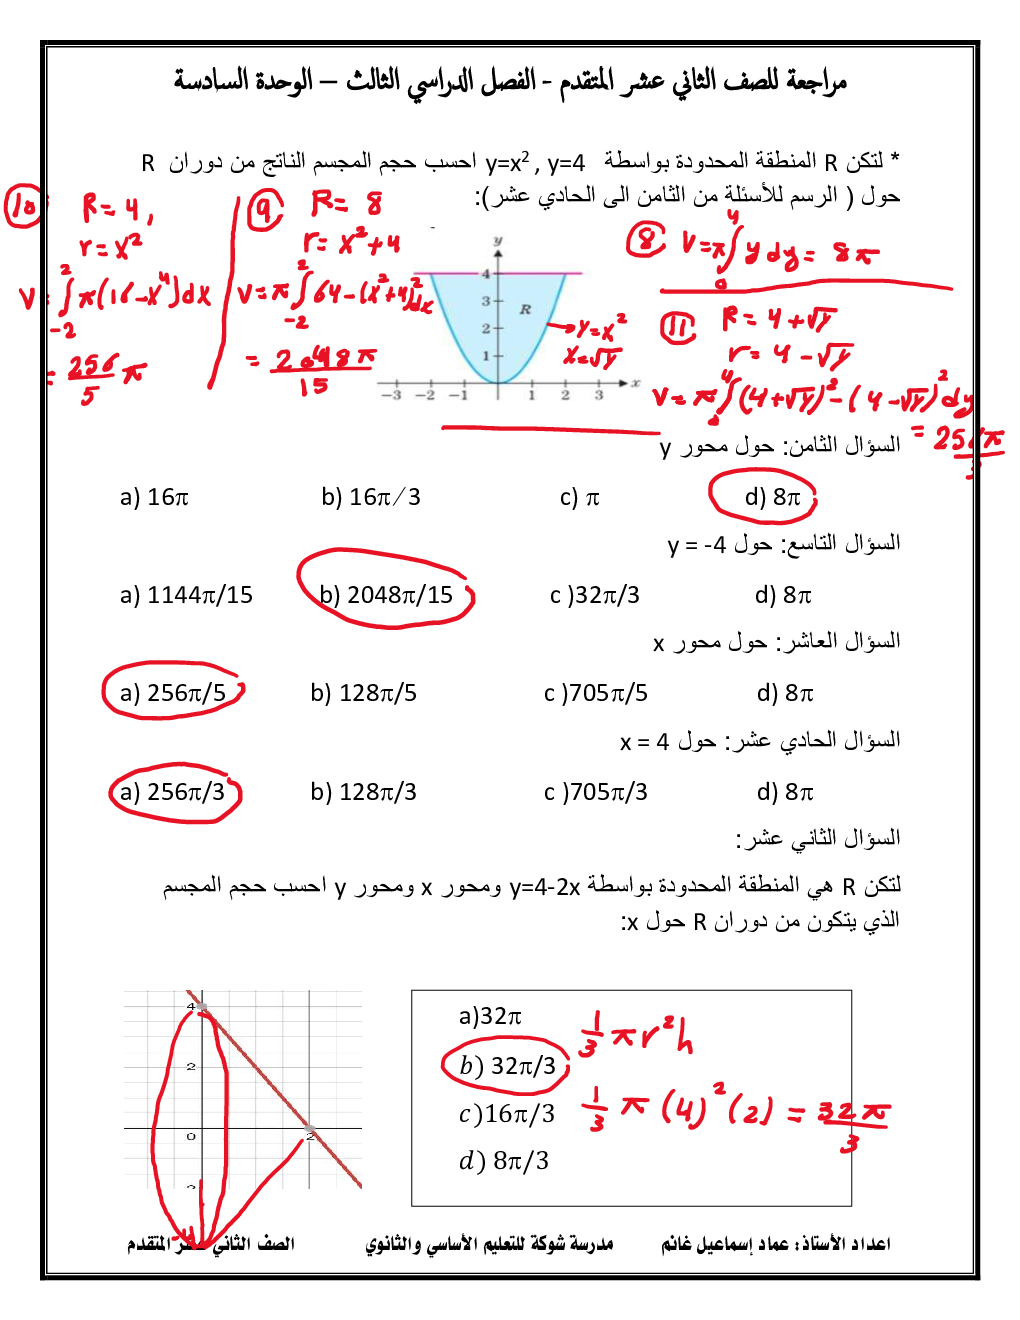 مراجعة للصف الثاني عشر المتقدم - الفصل الدراسي الثالث – الوحدة السادسة
* لتكن R المنطقة المحدودة بواسطة y=x² , y=4 احسب حجم المجسم الناتج من دوران R
حول ( الرسم للأسئلة من الثامن الى الحادي عشر):
10 R=4,
r=x²
V=∫₋₂² π(16-x⁴)dx
= 256/5 π
9 R=8
r=x²+4
V=π∫₋₂² 64-(x²+4)²dx
= 2048π/15
8 V=π∫₀⁴ y dy = 8π
11 R=4+√y
r=4-√y
V=π∫₀⁴ (4+√y)²-(4-√y)² dy
= 256π/3
y
4
3
2
1
R
y=x²
x=√y
-3 -2 -1 1 2 3 x
السؤال الثامن: حول محور y
a) 16π b) 16π/3 c) π d) 8π
السؤال التاسع: حول y = -4
a) 1144π/15 b) 2048π/15 c )32π/3 d) 8π
السؤال العاشر: حول محور x
a) 256π/5 b) 128π/5 c )705π/5 d) 8π
السؤال الحادي عشر: حول x = 4
a) 256π/3 b) 128π/3 c )705π/3 d) 8π
السؤال الثاني عشر:
لتكن R هي المنطقة المحدودة بواسطة y=4-2x ومحور x ومحور y احسب حجم المجسم
الذي يتكون من دوران R حول x:
4
2
0 2
-4
a)32π
b) 32π/3
c)16π/3
d) 8π/3
1/3 πr²h
1/3 π(4)²(2) = 32π/3
اعداد الأستاذ: عماد إسماعيل غانم مدرسة شوكة للتعليم الأساسي والثانوي الصف الثاني عشر المتقدم